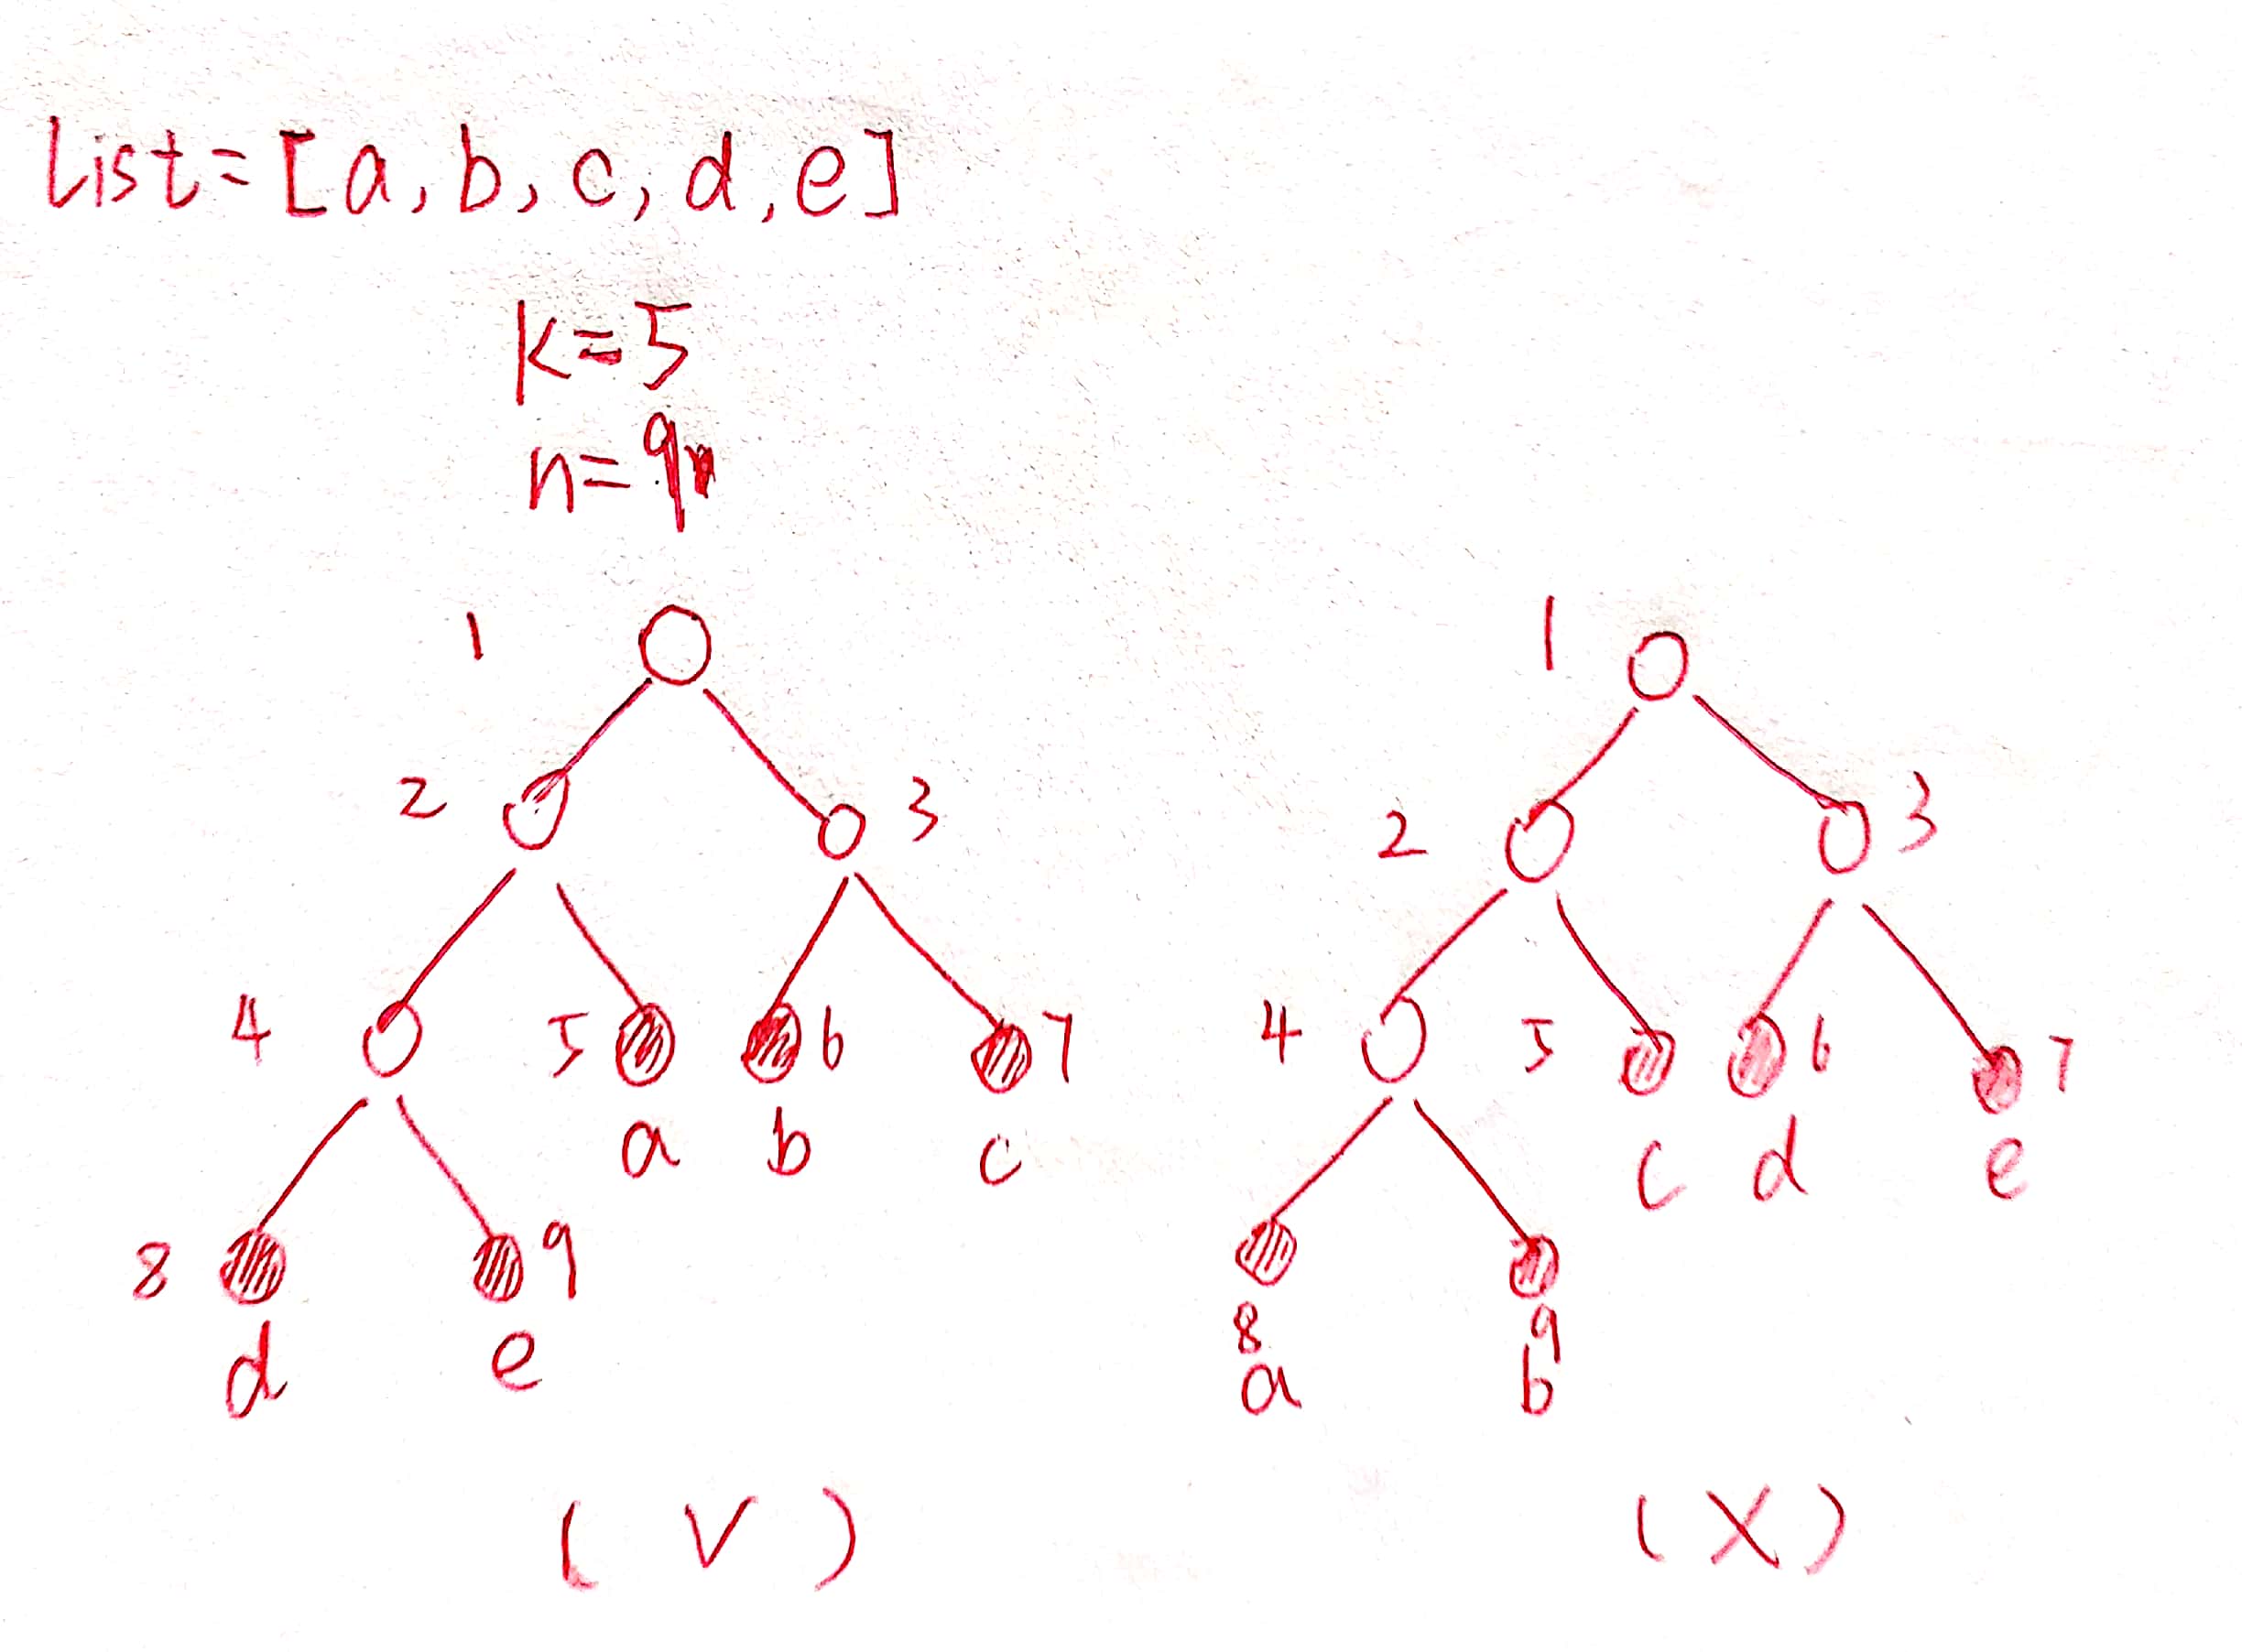 List=[a,b,c,d,e]
k=5
n=9
1
2 3
4 5 6 7
a b c
8 9
d e
(V)
1
2 3
4 5 6 7
c d e
8 9
a b
(X)